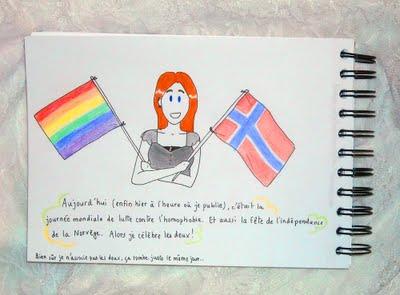 Aujourd'hui (enfin hier à l'heure où je publie), c'était la
journée mondiale de lutte contre l'homophobie. Et aussi la fête de l'indépendance
de la Norvège. Alors je célèbre les deux !
Bien sûr je n'associe pas les deux, ça tombe juste le même jour...